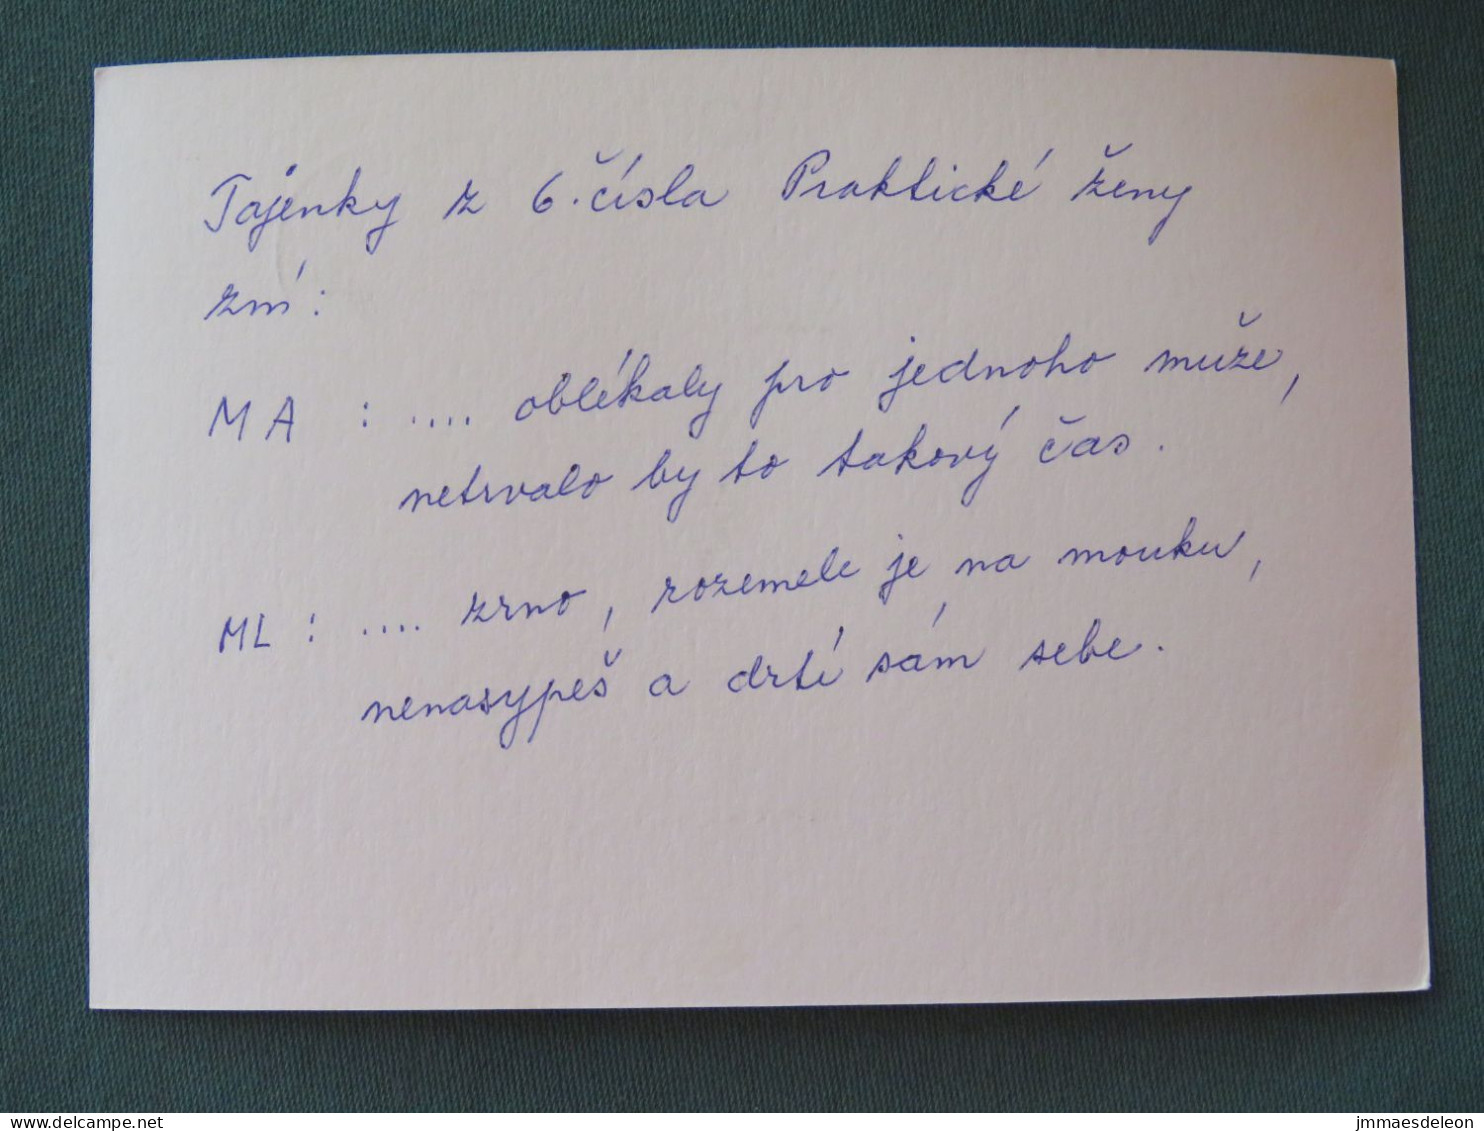 Tajenky z 6. čísla Praktické ženy
zní:
MA : .... oblékaly pro jednoho muže,
netrvalo by to takový čas.
ML : .... zrno, rozemele je na mouku,
nenasypeš a drtí sám sebe.
delcampe.net
jmmaesdeleon